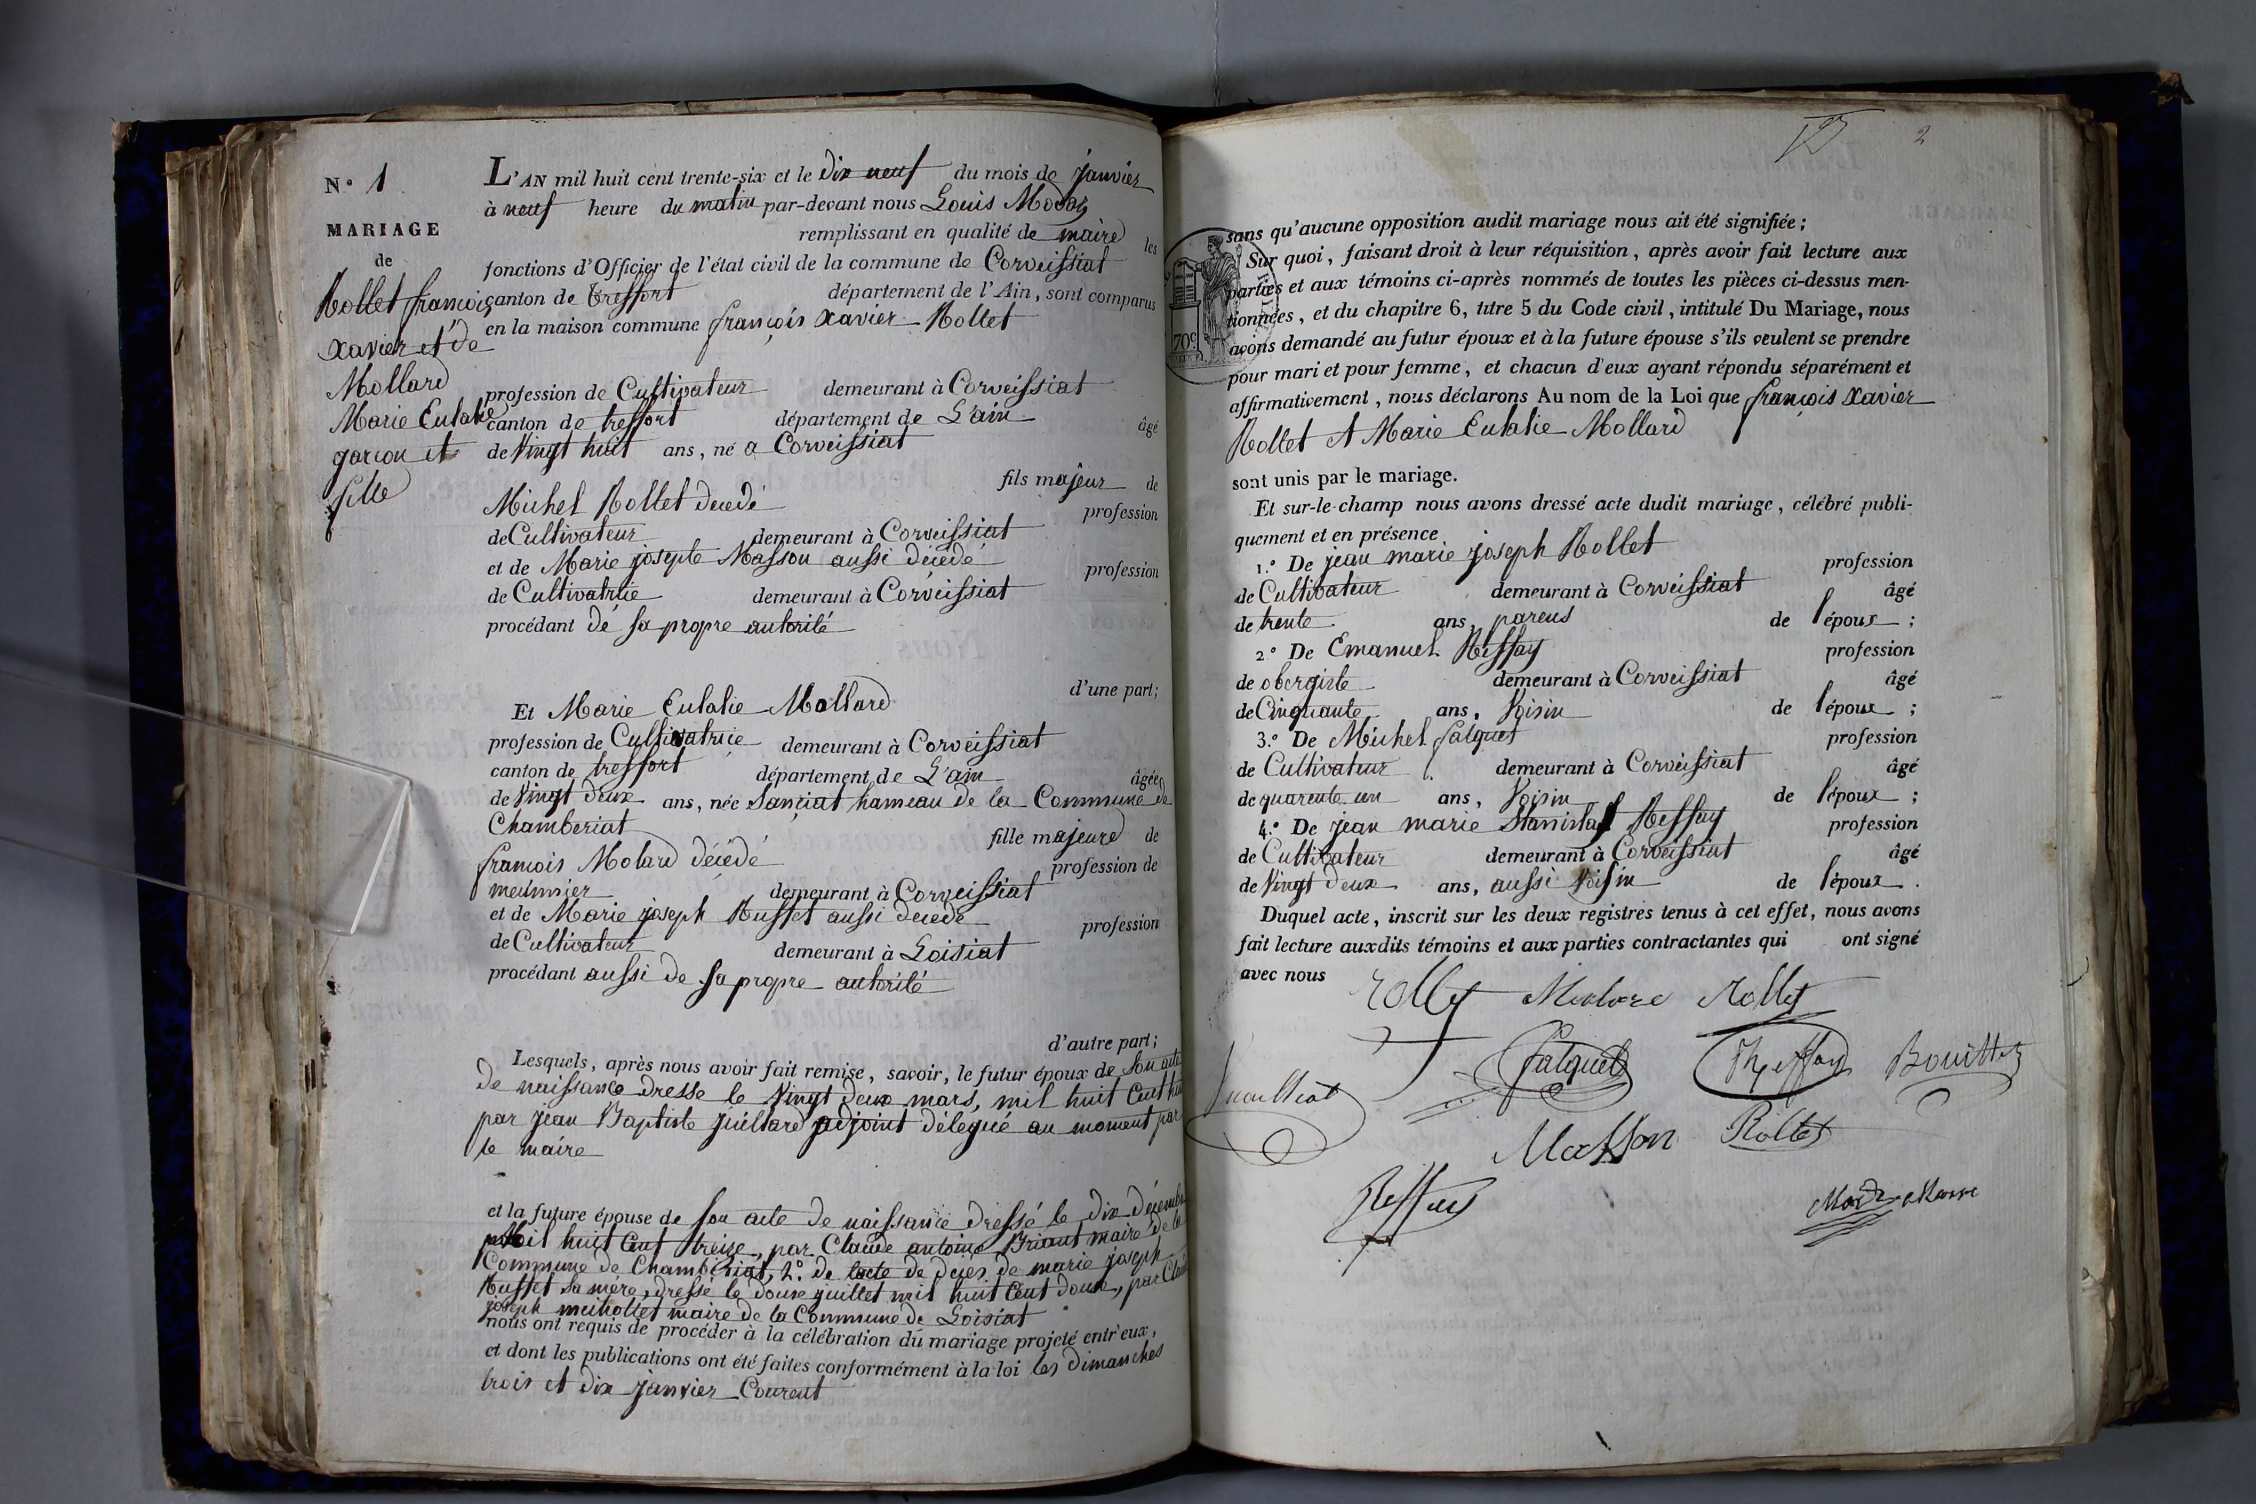 N.º 1
MARIAGE
de
Rollet françois
xavier et de
Mollard
Marie Eulalie
garçon et
fille
L'AN mil huit cent trente-six et le dix neuf du mois de janvier
à neuf heure du matin par-devant nous Louis
remplissant en qualité de maire les
fonctions d'Officier de l'état civil de la commune de Corveissiat
canton de treffort département de l'Ain, sont comparus
en la maison commune françois xavier Rollet
profession de Cultivateur demeurant à Corveissiat
canton de treffort département de L'ain âgé
de Vingt huit ans, né a Corveissiat
fils majeur de
Michel Rollet decedé profession
de Cultivateur demeurant à Corveissiat
et de Marie josephe Masson aussi décédé profession
de Cultivatrice demeurant à Corveissiat
procédant de sa propre autorité
d'une part;
Et Marie Eulalie Mollard
profession de Cultivatrice demeurant à Corveissiat
canton de treffort département de L'ain âgée
de Vingt deux ans, née Sanciat hameau de la Commune de
Chamberiat fille majeure de
francois Molard décédé profession de
meûnnier demeurant à Corveissiat
et de Marie joseph Russet aussi decede profession
de Cultivateur demeurant à Loisiat
procédant aussi de sa propre autorité
d'autre part;
Lesquels, après nous avoir fait remise, savoir, le futur époux de son acte
de naissance dresse le Vingt deux mars, mil huit Cent huit
par jean Baptiste juillard adjoint délegué au moment par
le maire
et la future épouse de son acte de naissance dressé le dix décembre
Mil huit Cent treize, par Claude antoine Briant maire de la
Commune de Chamberiat, 2.º de lacte de deces de marie joseph
Russet sa mére, dressé le douze juillet mil huit Cent douze, par Claude
joseph maire de la Commune de Loisiat
nous ont requis de procéder à la célébration du mariage projeté entr'eux,
et dont les publications ont été faites conformément à la loi les dimanches
trois et dix janvier Courent
2
70c
sans qu'aucune opposition audit mariage nous ait été signifiée;
Sur quoi, faisant droit à leur réquisition, après avoir fait lecture aux
parties et aux témoins ci-après nommés de toutes les pièces ci-dessus men-
tionnées, et du chapitre 6, titre 5 du Code civil, intitulé Du Mariage, nous
avons demandé au futur époux et à la future épouse s'ils veulent se prendre
pour mari et pour femme, et chacun d'eux ayant répondu séparément et
affirmativement, nous déclarons Au nom de la Loi que françois Xavier
Rollet et Marie Eulalie Mollard
sont unis par le mariage.
Et sur-le-champ nous avons dressé acte dudit mariage, célébré publi-
quement et en présence
1.º De jean marie joseph Rollet profession
de Cultivateur demeurant à Corveissiat âgé
de trente ans, parens de l'époux;
2.º De Emanuel Reffay profession
de obergiste demeurant à Corveissiat âgé
de Cinquante ans, Voisin de l'époux;
3.º De Michel falquet profession
de Cultivateur demeurant à Corveissiat âgé
de quarente un ans, Voisin de l'époux;
4.º De jean marie Stanislas Reffay profession
de Cultivateur demeurant à Corveissiat âgé
de Vingt deux ans, aussi Voisin de l'époux.
Duquel acte, inscrit sur les deux registres tenus à cet effet, nous avons
fait lecture auxdits témoins et aux parties contractantes qui ont signé
avec nous
Rollet Rollet
falquet Reffay
Masson Rollet
Reffay